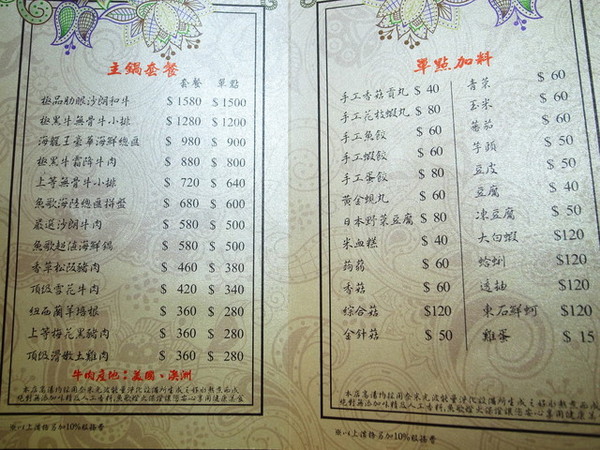 主鍋套餐
套餐 單點
極品肋眼沙朗和牛 $1580 $1500
極黑牛無骨牛小排 $1280 $1200
海龍王豪華海鮮總匯 $ 980 $ 900
極黑牛霜降牛肉 $ 880 $ 800
上等無骨牛小排 $ 720 $ 640
魚歌海陸總匯拼盤 $ 680 $ 600
嚴選沙朗牛肉 $ 580 $ 500
魚歌超澎海鮮鍋 $ 580 $ 500
香草松阪豬肉 $ 460 $ 380
頂級雪花牛肉 $ 420 $ 340
紐西蘭羊培根 $ 360 $ 280
上等梅花黑豬肉 $ 360 $ 280
頂級滑嫩土雞肉 $ 360 $ 280
牛肉產地:美國、澳洲
※以上價格另加10%服務費
單點加料
手工香菇貢丸 $ 40
手工花枝蝦丸 $ 80
手工魚餃 $ 60
手工蝦餃 $ 60
手工蛋餃 $ 60
黃金蜆丸 $ 60
日本野菜豆腐 $ 80
米血糕 $ 40
蒟蒻 $ 60
香菇 $ 60
綜合菇 $120
金針菇 $ 50
青菜 $ 60
玉米 $ 60
蕃茄 $ 60
芋頭 $ 50
豆皮 $ 50
豆腐 $ 40
凍豆腐 $ 50
大白蝦 $120
蛤蜊 $120
透抽 $120
東石鮮蚵 $120
雞蛋 $ 15
※以上價格另加10%服務費